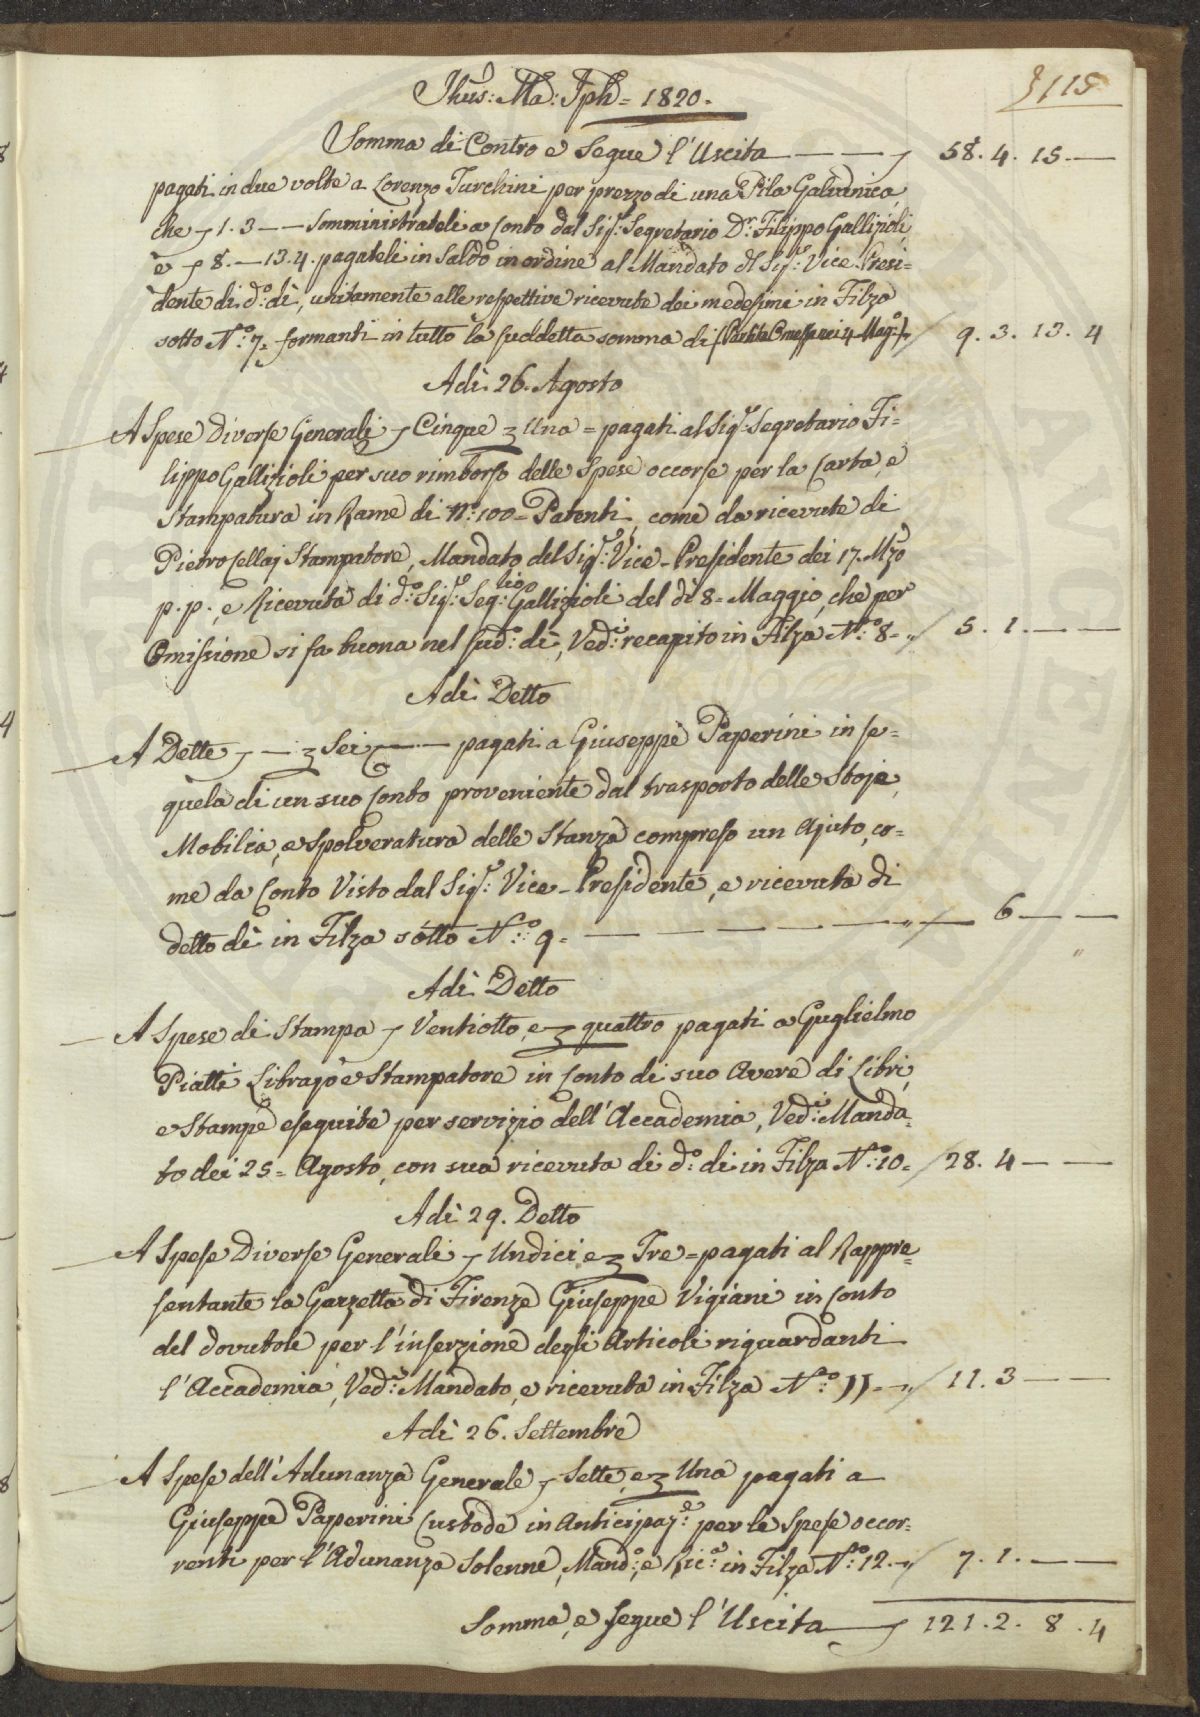 115
Jhus: Ma: Jph = 1820.
Somma di Contro e Segue l'Uscita — — — 58. 4. 15. —
pagati in due volte a Lorenzo Turchini per prezzo di una Pila Galvanica,
che 1. 3 — — Somministrateli a Conto dal Sig:r Segretario D:r Filippo Gallizioli
e 8. — 13. 4. pagateli in Saldo in ordine al Mandato dl Sig:r Vice Presi-
dente di d:o dì, unitamente alle respettive ricevute dei medesimi in Filza
sotto N:o 7. formanti in tutto la suddetta somma di (Partita Omessa nei 4 Mag:o) 9. 3. 13. 4
Adì 26. Agosto
A Spese Diverse Generali Cinque Una = pagati al Sig:r Segretario Fi-
lippo Gallizioli per suo rimborso delle Spese occorse per la Carta, e
Stampatura in Rame di N:o 100 = Patenti, come da ricevute di
Pietro Stampatore, Mandato del Sig:r Vice-Presidente dei 17. Mzo
p. p., e Ricevuta di d:o Sig:r Seg:rio Gallizioli del dì 8 = Maggio, che per
Omissione si fa buona nel sud:o dì, Ved:i recapito in Filza N:o 8 = 5. 1. — —
Adì Detto
A Dette — Sei — pagati a Giuseppe Paperini in se-
quela di un suo Conto proveniente dal trasporto delle Stoje,
Mobilia, e Spolveratura delle Stanze compreso un Ajuto, co-
me da Conto Visto dal Sig:r Vice-Presidente, e ricevuta di
detto dì in Filza sotto N:o 9 = — — — — — — 6 — —
Adì Detto
A Spese di Stampa Ventiotto, e quattro pagati a Guglielmo
Piatti Librajo e Stampatore in Conto di suo Avere di Libri,
e Stampe eseguite per servizio dell'Accademia, Ved:i Manda-
to dei 25 = Agosto, con sua ricevuta di d:o dì in Filza N:o 10 = 28. 4 — —
Adì 29. Detto
A Spese Diverse Generali Undici e Tre = pagati al Rappre-
sentante la Gazzetta di Firenze Giuseppe Vigiani in Conto
del dovutole per l'inserzione degli Articoli riguardanti
l'Accademia, Ved:i Mandato, e ricevuta in Filza N:o 11. — 11. 3 — —
Adì 26. Settembre
A Spese dell'Adunanza Generale Sette, e Una pagati a
Giuseppe Paperini Custode in Anticipaz:e per le Spese occor-
renti per l'Adunanza Solenne, Mand:o, e Ric:a in Filza N:o 12. — 7. 1. — —
Somma, e segue l'Uscita 121. 2. 8. 4